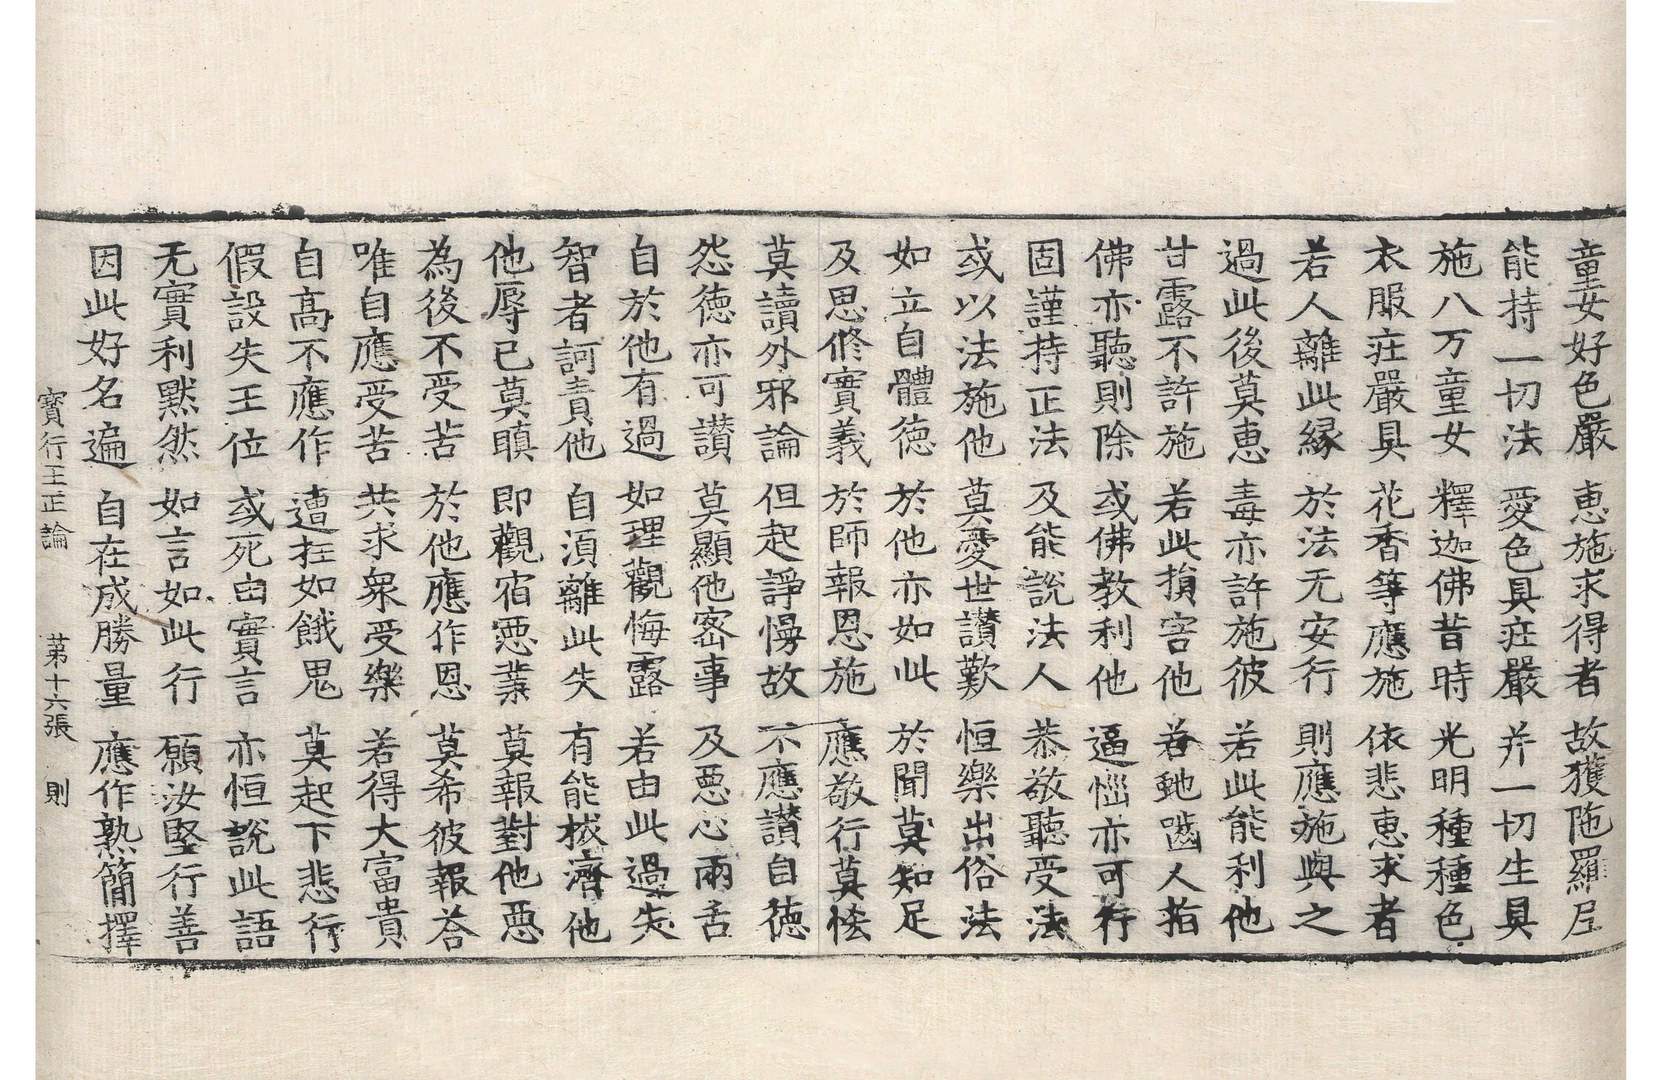 童女好色嚴 恵施求得者 故獲陁羅尼
能持一切法 愛色具莊嚴 并一切生具
施八万童女 釋迦佛昔時 光明種種色
衣服莊嚴具 花香等應施 依悲恵求者
若人離此縁 於法无安行 則應施與之
過此後莫恵 毒亦許施彼 若此能利他
甘露不許施 若此損害他 若虵嚙人指
佛亦聽則除 或佛教利他 逼惱亦可行
固謹持正法 及能說法人 恭敬聽受法
或以法施他 莫愛世讃歎 恒樂出俗法
如立自體徳 於他亦如此 於聞莫知足
及思修實義 於師報恩施 應敬行莫悋
莫讀外邪論 但起諍慢故 不應讃自徳
怨徳亦可讃 莫顯他宻事 及惡心兩舌
自於他有過 如理觀悔露 若由此過失
智者訶責他 自湏離此失 有能拔濟他
他辱已莫瞋 即觀宿惡業 莫報對他惡
為後不受苦 於他應作恩 莫希彼報荅
唯自應受苦 共求衆受樂 若得大富貴
自髙不應作 遭抂如餓鬼 莫起下悲行
假設失王位 或死由實言 亦恒說此語
无實利黙然 如言如此行 願汝堅行善
因此好名遍 自在成勝量 應作熟簡擇
寶行王正論 苐十六張 則